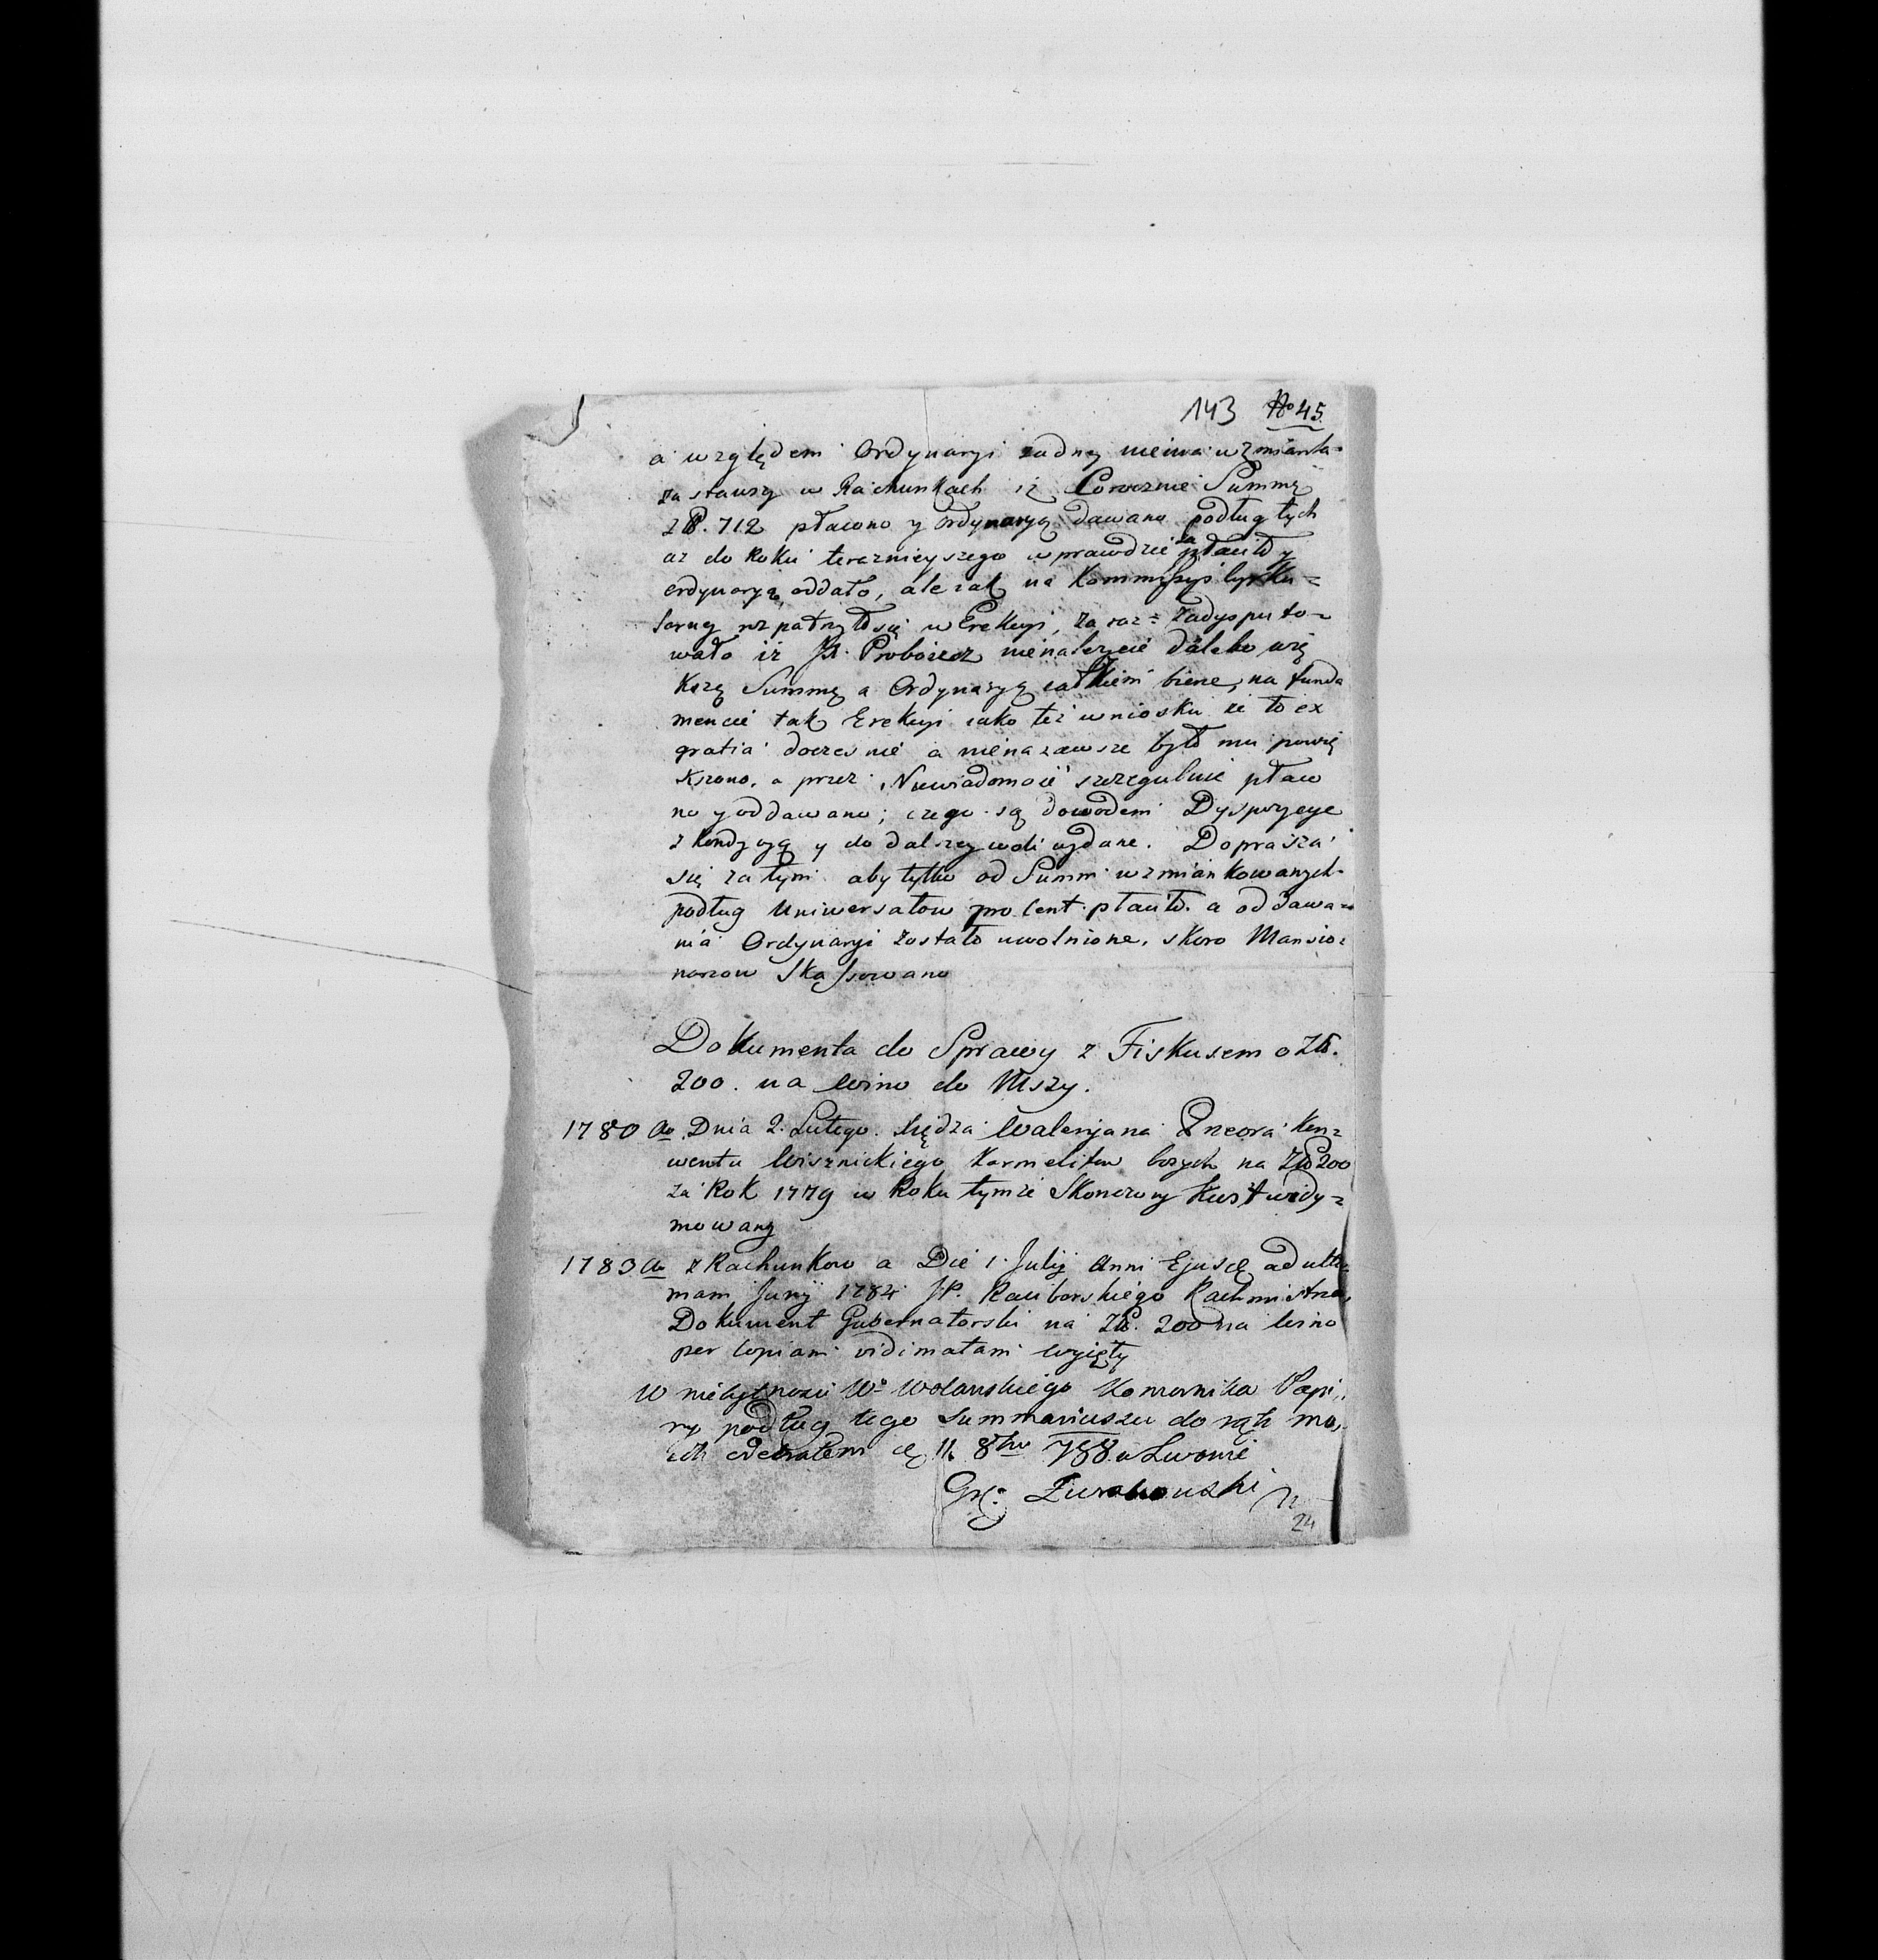 143 No 45.
a względem Ordynaryi żadney niema wzmianka
zastawszy w Rachunkach iż Corocznie Summę
Zł. 712 płacono y Ordynaryą dawano podług tych
az do Roku teraznieyszego wprawdzie płacił y
ordynaryą oddało, ale iak na Kommissyi Cyrku=
larney rozpatrzył się w Erekcyi, zaraz= zadysputo=
wało iż Jx. Proboszcz nienalezycie daleko wię
kszą Summę a Ordynaryą całkiem bierze, na funda
mencie tak Erekcyi iako też wniosku że to ex
gratia doczesnie a nie na zawsze było mu powię
kszono, a przez Niewiadomość szczegulnie płaco
no y oddawano; czego są dowodem Dyspozycye
z Kondycyą y do dalszey woli wydane. Doprasza
się zatym aby tylko od Summ wzmiankowanych
podług Uniwersałow pro Cent. płacił. a oddawa=
nia Ordynaryi zostało uwolnione, skoro Mansio=
narzow skassowano
Dokumenta do Sprawy z Fiskusem o Zł.
200. na Wino do Mszy.
1780 Ao Dnia 2. Lutego. Xiędza Waleryana Przeora Kon=
wentu Wisznickiego Karmelitow bosych na Zł 200
za Rok 1779 w Roku tymże Skonczony Kwit widy=
mowany
1783 Ao z Rachunkow a Die 1. Julij Anni Ejusd. ad ulti=
mam Junij 1784 JP. Raciborskiego Rachmistrza
Dokument Gubernatorski na Zł. 200 na Wino
per Copiam vidimatam wyięty
W niebytnosci Wo Wolanskiego Komornika Papi,,
ry podług tego Summariuszu do rąk mo,,
ich odebrałem d. 11 8bra 788. w Lwowie
Grz: Żurakowski
24